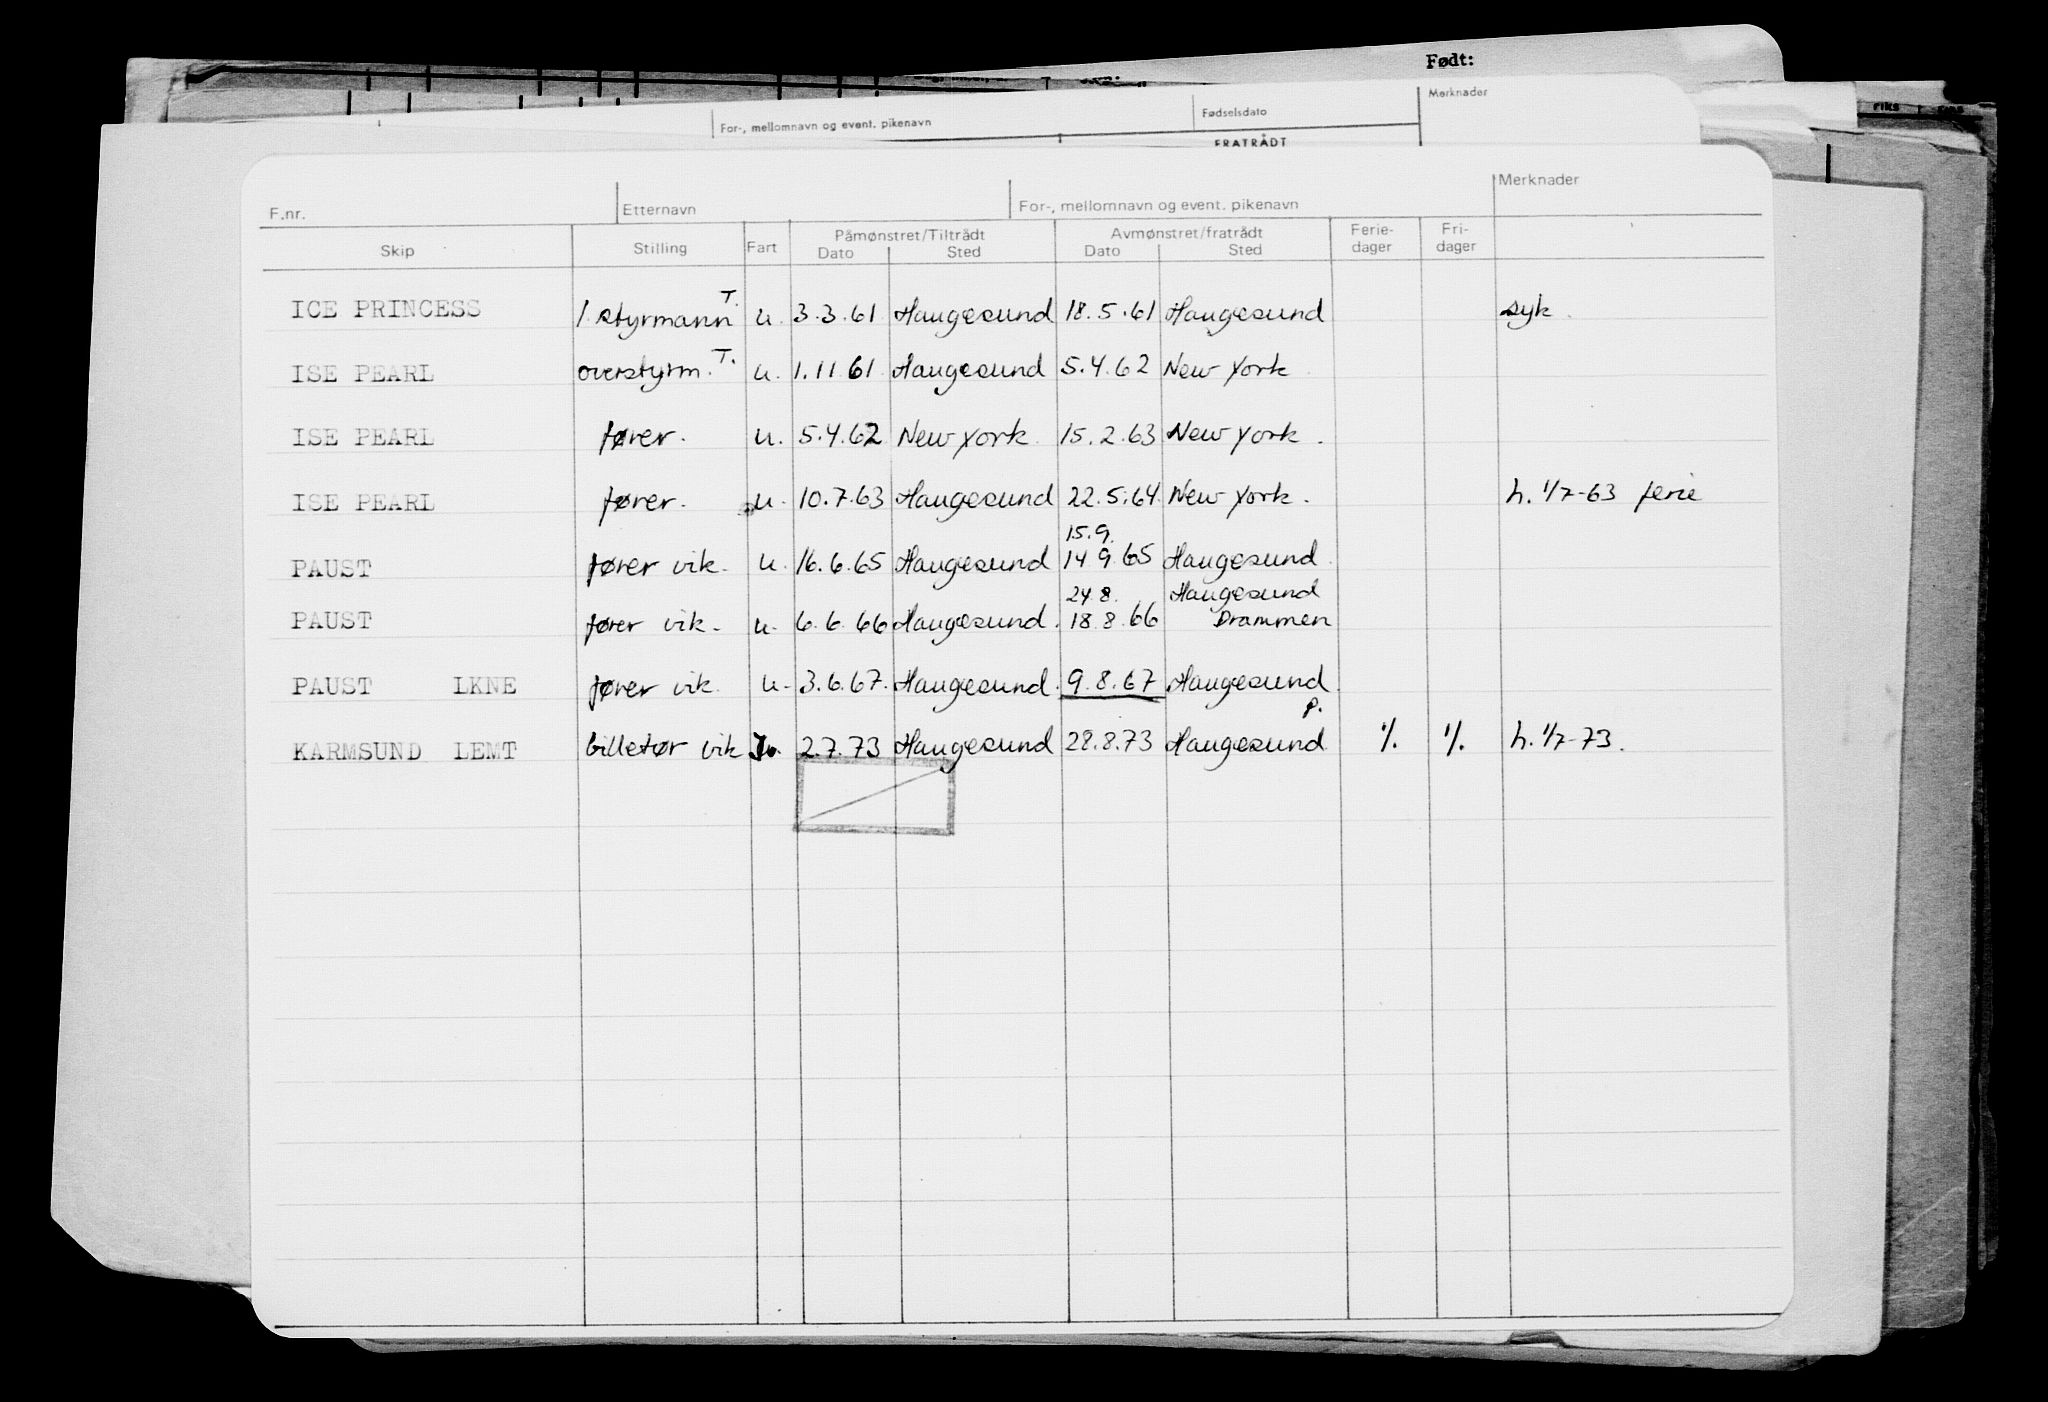 Født:
Merknader
For-, mellomnavn og event. pikenavn
Fødselsdato
FRATRÅDT
F.nr. Etternavn For-, mellomnavn og event. pikenavn Merknader
Skip Stilling Fart Påmønstret/Tiltrådt Avmønstret/fratrådt Ferie- Fri-
Dato Sted Dato Sted dager dager
ICE PRINCESS 1. styrmann T. u. 3.3.61 Haugesund 18.5.61 Haugesund syk.
ISE PEARL overstyrm. T. u. 1.11.61 Haugesund 5.4.62 New York.
ISE PEARL fører. u. 5.4.62 New York. 15.2.63 New York.
ISE PEARL fører. u. 10.7.63 Haugesund 22.5.64. New York. h. 1/7-63 ferie
15.9.
PAUST fører vik. u. 16.6.65 Haugesund 14 9.65 Haugesund.
24.8. Haugesund
PAUST fører vik. u. 6.6.66 Haugesund. 18.8.66 Drammen
PAUST LKNE fører vik. u. 3.6.67. Haugesund. 9.8.67 Haugesund.
p.
KARMSUND LEMT billetør vik 2.7.73 Haugesund 28.8.73 Haugesund 1/. 1/. h. 1/7-73.